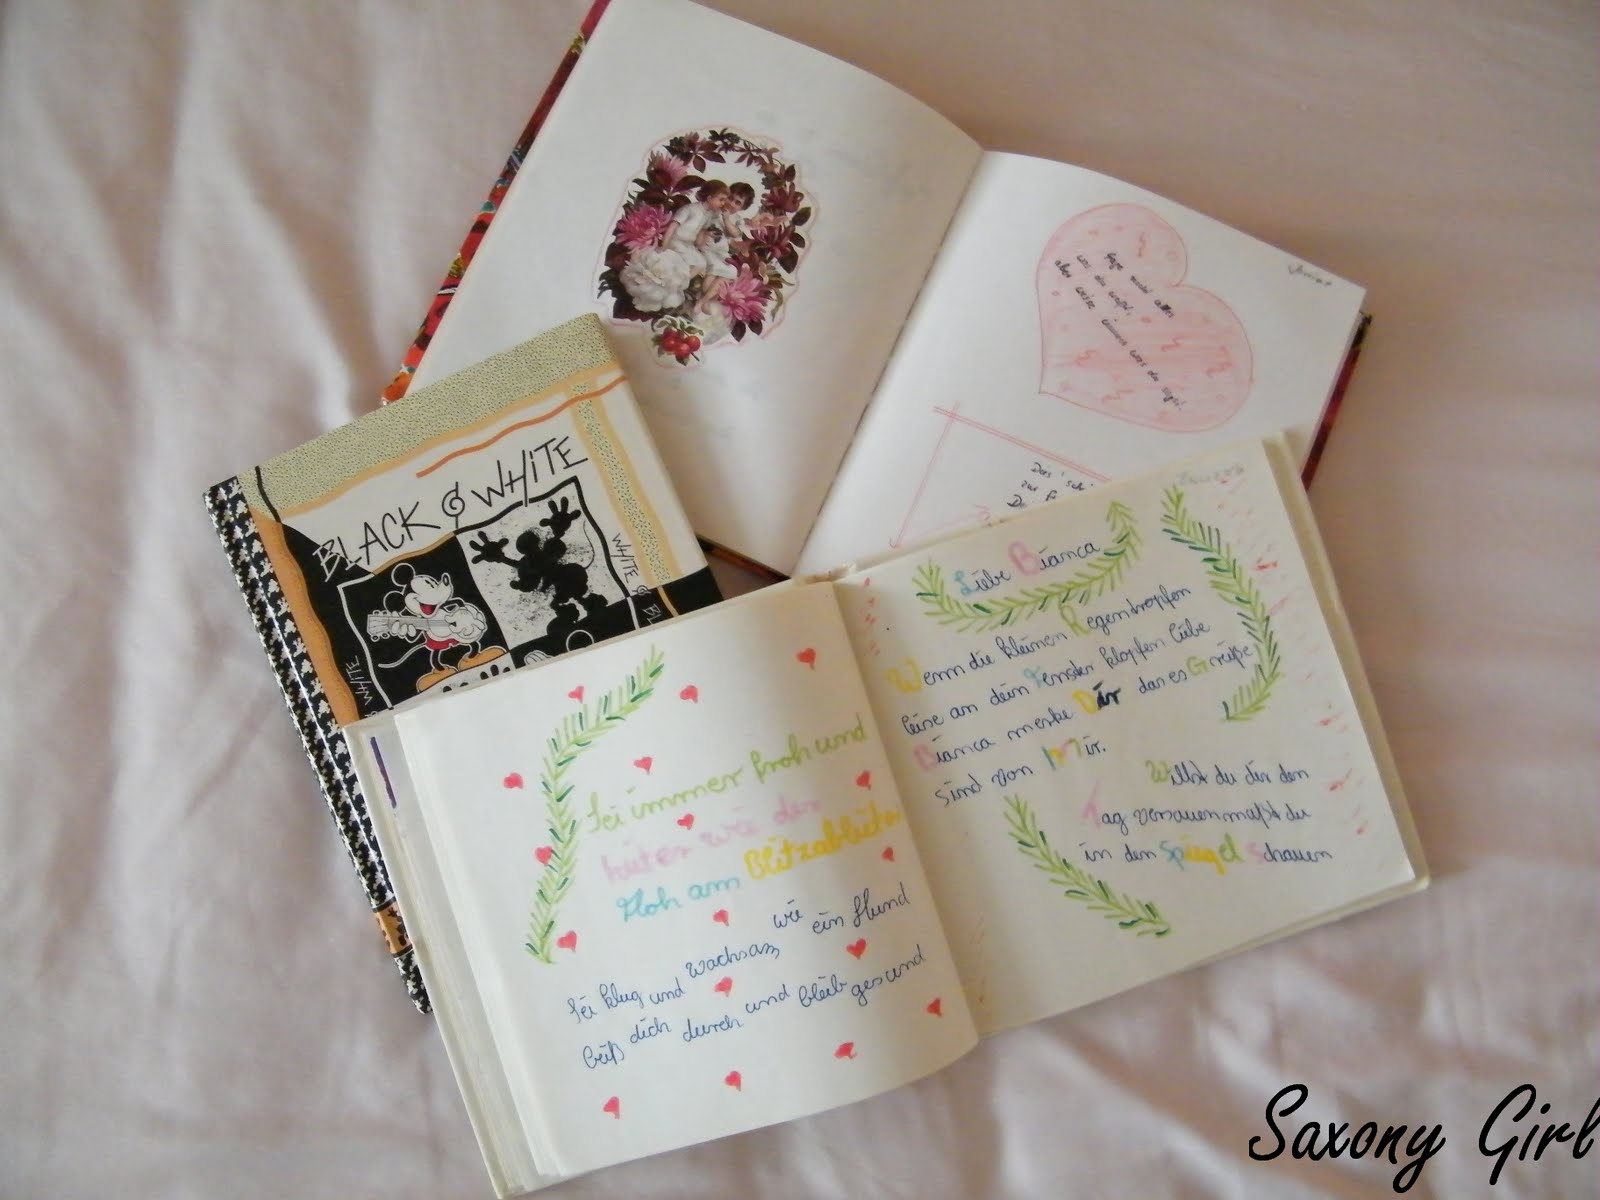 sage nicht alles
was du weißt,
aber wisse immer was du sagst.
BLACK & WHITE
WHITE &
WHITE
Liebe Bianca
Wenn die kleinen Regentropfen
leise an dein Fenster klopfen liebe
Bianca merke Dir das es Grüße
sind von Mir.
Willst du dir den
Tag versauen mußt du
in den Spiegel schauen
Sei immer froh und
wie der
Floh am
Sei klug und wachsam wie ein Hund
beiß dich durch und bleib gesund
Saxony Girl